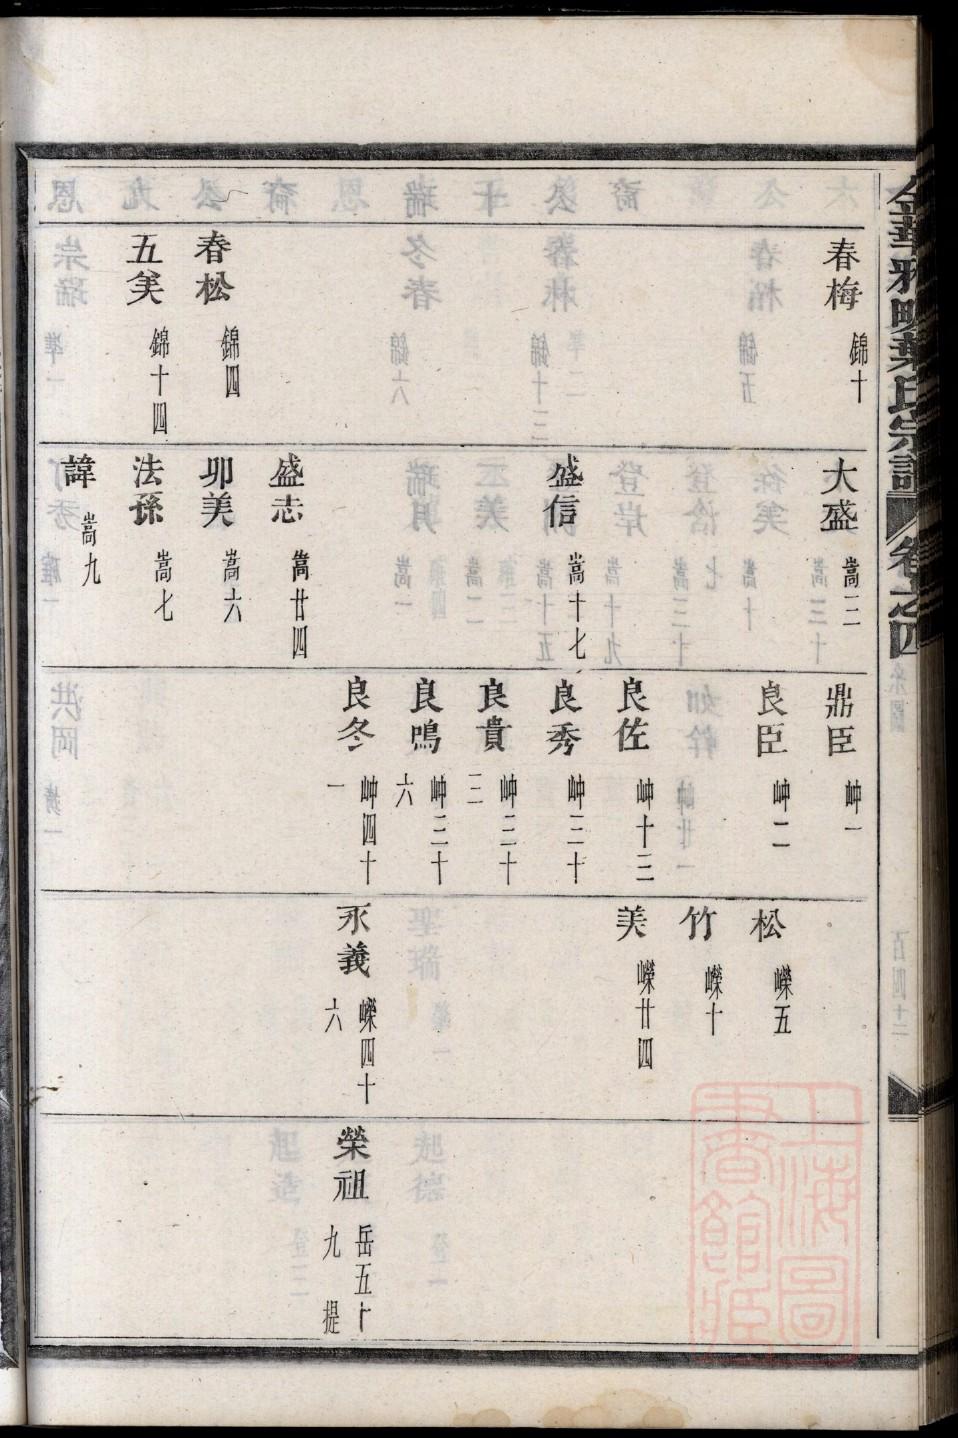 金華雅畈葉氏宗譜 卷之四
春梅 錦十
春松 錦四
五美 錦十四
大盛 嵩三
盛信 嵩十七
盛志 嵩廿四
卯美 嵩六
法孫 嵩七
諱 嵩九
鼎臣 岫一
良臣 岫二
良佐 岫十三
良秀 岫三十
良貴 岫三十三
良鳴 岫三十六
良冬 岫四十一
松 嶸五
竹 嶸十
美 嶸廿四
永義 嶸四十六
榮祖 岳五十九 提
上海圖書館藏